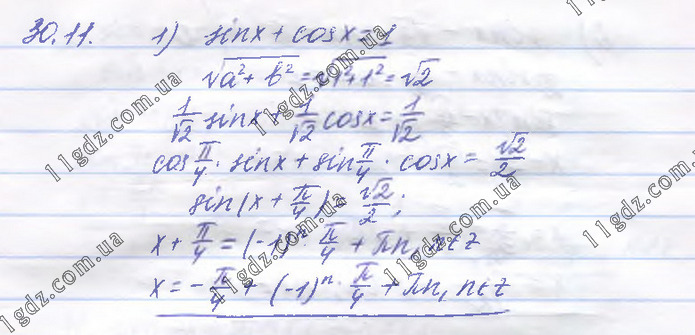 30.11. 1) sinx + cosx = 1
√(a² + b²) = √(1² + 1²) = √2
1/√2 sinx + 1/√2 cosx = 1/√2
cos π/4 · sinx + sin π/4 · cosx = √2/2
sin(x + π/4) = √2/2;
x + π/4 = (-1)ⁿ π/4 + πn, n∈z
x = -π/4 + (-1)ⁿ · π/4 + πn, n∈z
11gdz.com.ua
11gdz.com.ua
11gdz.com.ua
11gdz.com.ua
11gdz.com.ua
11gdz.com.ua